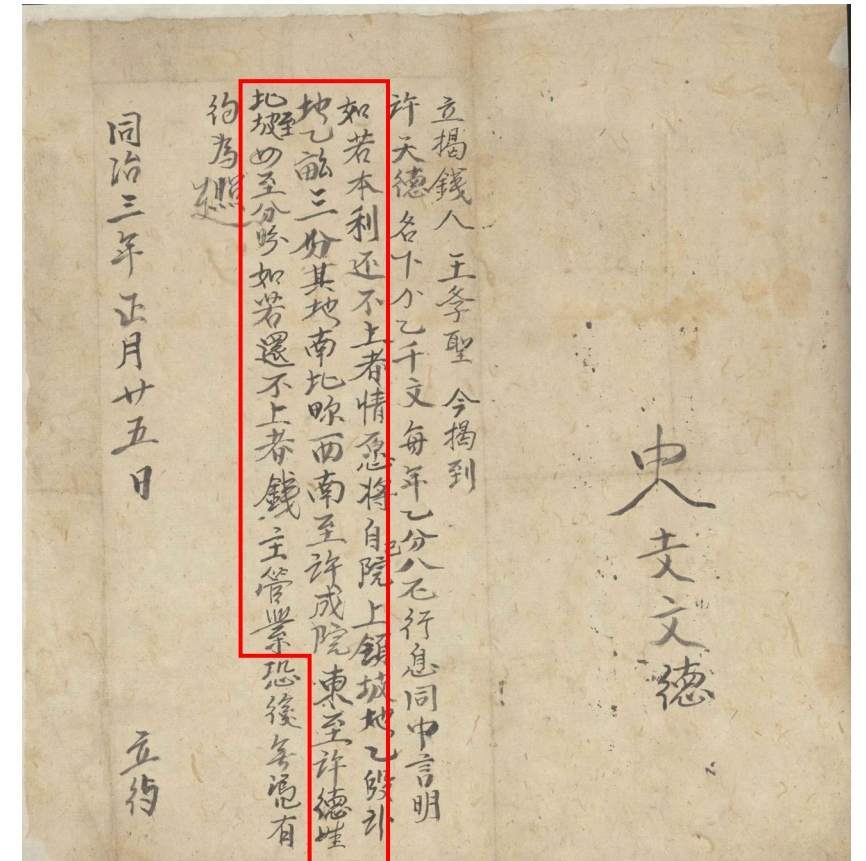 立揭錢人王孝聖今揭到
許天德名下个乙千文每年乙分八厘行息同中言明
如若本利还不上者情愿将自己院上領坡地乙段計
地乙畝三分其地南北畛西南至許成院東至許德娃
北至坡四至分明如若還不上者錢主管業恐後無憑有
約為照
同治三年正月廿五日 立約
中人 文德